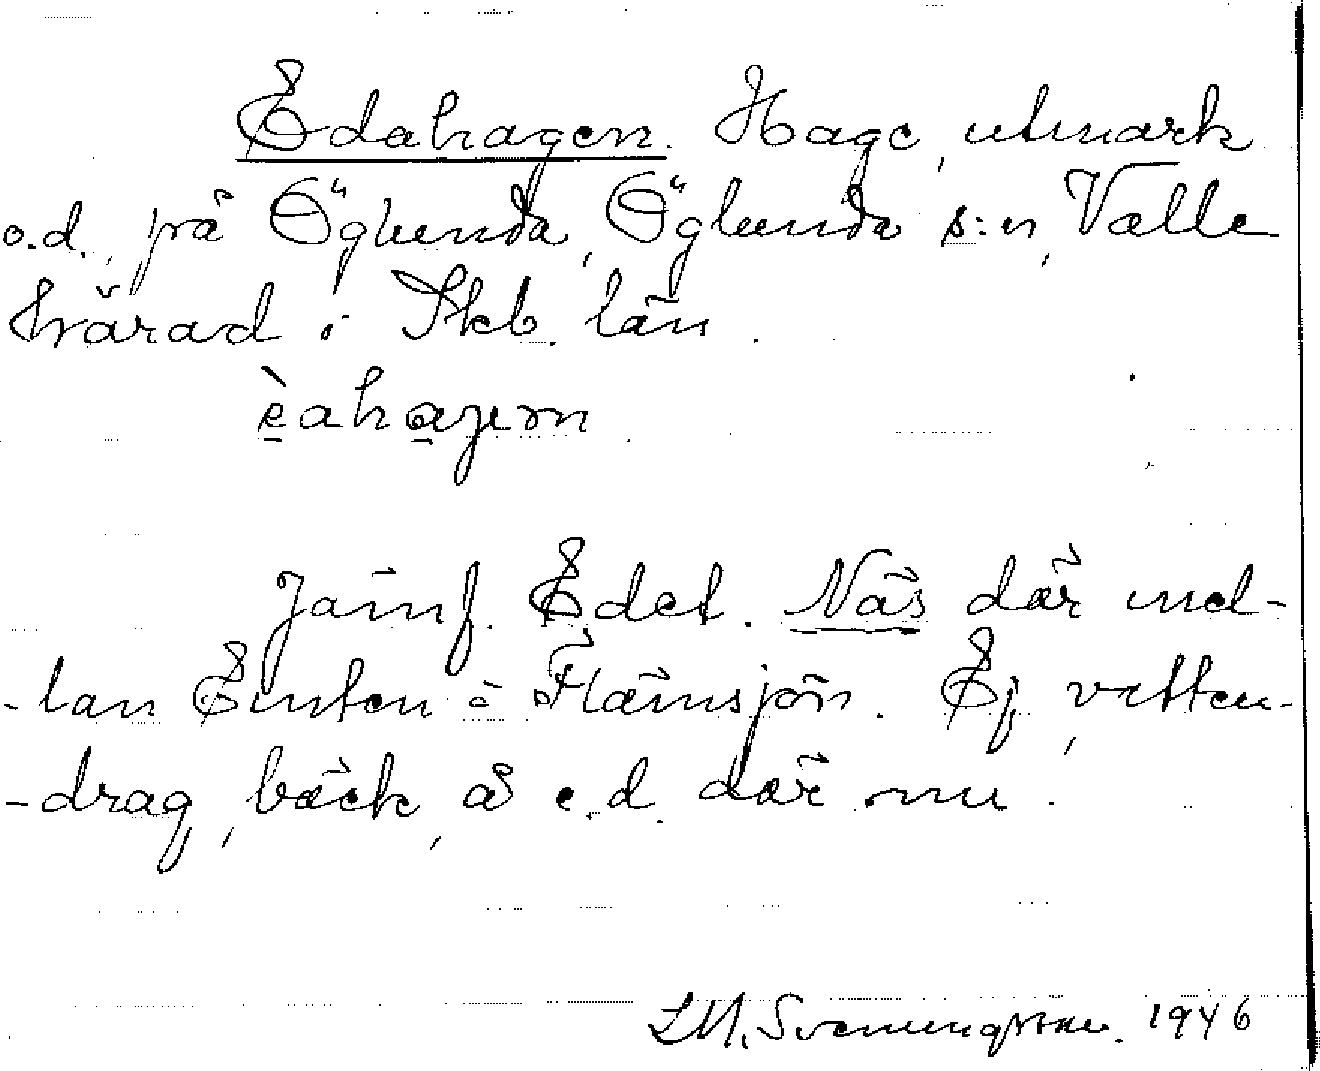 Edahagen. Hage, utmark
o.d., på Öglunda, Öglunda s:n, Valle
härad i Skb. län.
èahagen
Jämf. Edet. Näs där mel-
-lan Emten o Flämsjön. Ej, vatten-
-drag, bäck, å e.d. där nu.
1946